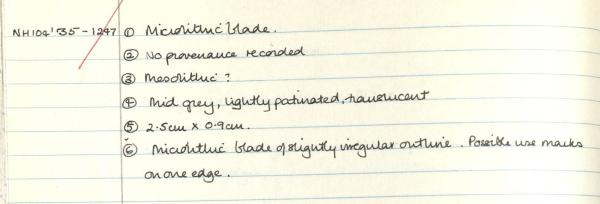 NH104'35-1247 ① Microlithic blade.
② No provenance recorded
③ Mesolithic ?
④ Mid grey, lightly patinated, translucent
⑤ 2.5cm X 0.9cm.
⑥ Microlithic blade of slightly irregular outline. Possible use marks
on one edge.